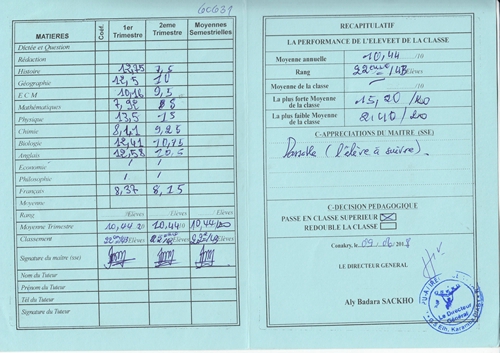 GCG31
MATIERES Coef. 1er Trimestre 2eme Trimestre Moyennes Semestrielles
Dictée et Question
Rédaction
Histoire 12,75 7,5
Géographie 12,5 10
E C M 10,16 9,5
Mathématiques 7,92
Physique 13,5 15
Chimie 8,41 9,25
Biologie 12,41 10,75
Anglais 12,58
Economie / /
Philosophie / /
Français 8,37 8,15
Moyenne
Rang /Elèves /Elèves /Elèves
Moyenne Trimestre 10,44 20 10,44 /10 10,44
Classement /Elèves
Signature du maître (sse)
Nom du Tuteur
Prénom du Tuteur
Tél du Tuteur
Signature du Tuteur
RECAPITULATIF
LA PERFORMANCE DE L'ELEVE ET DE LA CLASSE
Moyenne annuelle 10,44 /10
Rang 22ème /48 Elèves
Moyenne de la classe /10
La plus forte Moyenne de la classe 15,20 /20
La plus faible Moyenne de la classe 2,40 /20
C-APPRECIATIONS DU MAITRE (SSE)
Passable (l'élève à suivre).
C-DECISION PEDAGOGIQUE
PASSE EN CLASSE SUPERIEUR
REDOUBLE LA CLASSE
Conakry, le 09.06 2018
LE DIRECTEUR GENERAL
Aly Badara SACKHO
Le Directeur Général